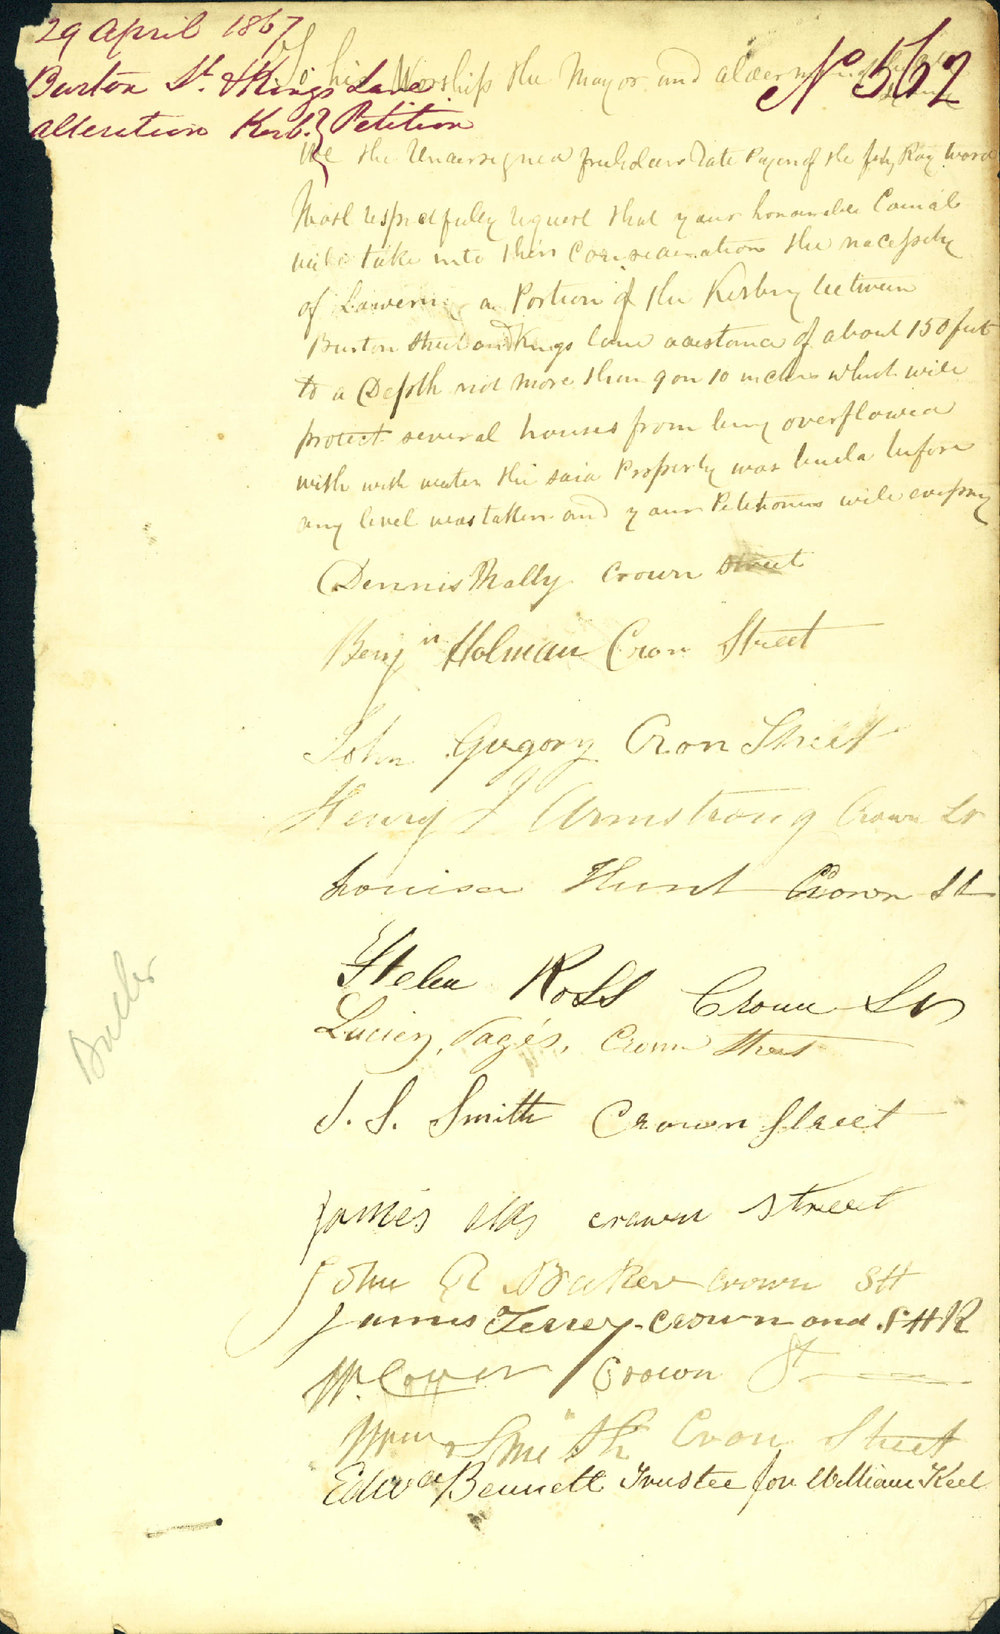 29 April 1867
Burton St. & Kings Lane.
alteration Kerb. } Petition
No 562
To his Worship the Mayor and aldermen
We the Undersigned freeholders Rate Payers of the fitz Roy Ward
Most respectfuley request that your honorable Councal
will take into their Consideration the necessity
of Lawering a Portion of the Kerbing between
Burton Street and Kings lane a distance of about 150 feet
to a Depth not more than 9 on 10 inches which will
protect several houses from being overflowed
with with water the said Property was builda before
any level was taken and your Petitioners will ever pray
Dennis Mally Crown Street
Benjn Holman Cron Street
John Gregory Cron Street
Henry J Armstrong Crown St
Louisa Hunt Crown St
Helen Ross Crown St
Lucien Pagés, Crown Street
J. S. Smith Crown Street
James crown street
John R Baker crown Stt
James Terrey. Crown and S H R
W. Crown St
Wm Smith Cron Street
Edwd Bennett Trustee for William Keel